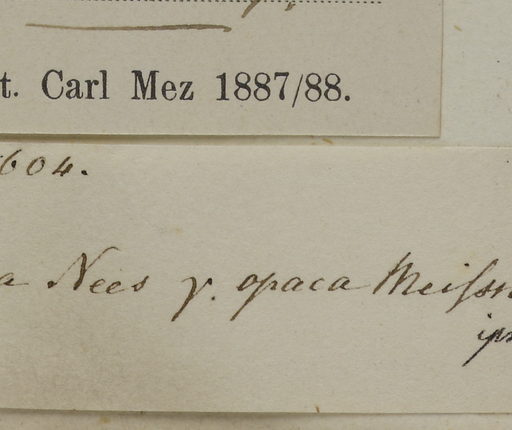 t. Carl Mez 1887/88.
604.
a Nees γ. opaca Meissn
ips